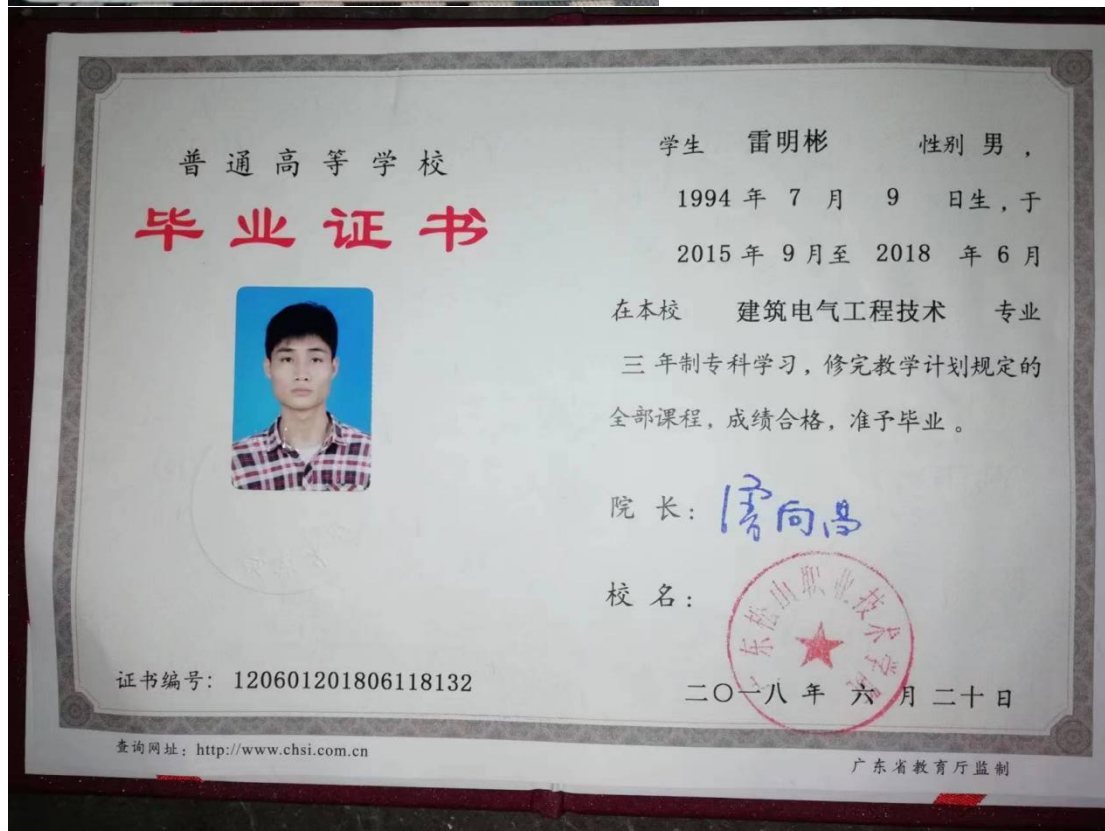 普通高等学校
毕业证书
证书编号: 120601201806118132
查询网址: http://www.chsi.com.cn
学生 雷明彬 性别 男,
1994 年 7 月 9 日生,于
2015 年 9 月至 2018 年 6 月
在本校 建筑电气工程技术 专业
三 年制专科学习,修完教学计划规定的
全部课程,成绩合格,准予毕业。
院 长: 曾向昌
校 名:
广东松山职业技术学院
二〇一八 年 六 月 二十 日
广东省教育厅监制